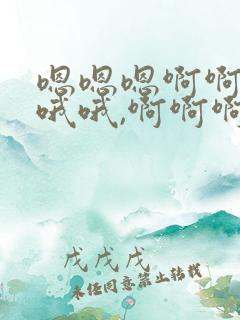 嗯嗯嗯啊啊
哦哦,啊啊啊
戌戌戌
未经同意禁止转载